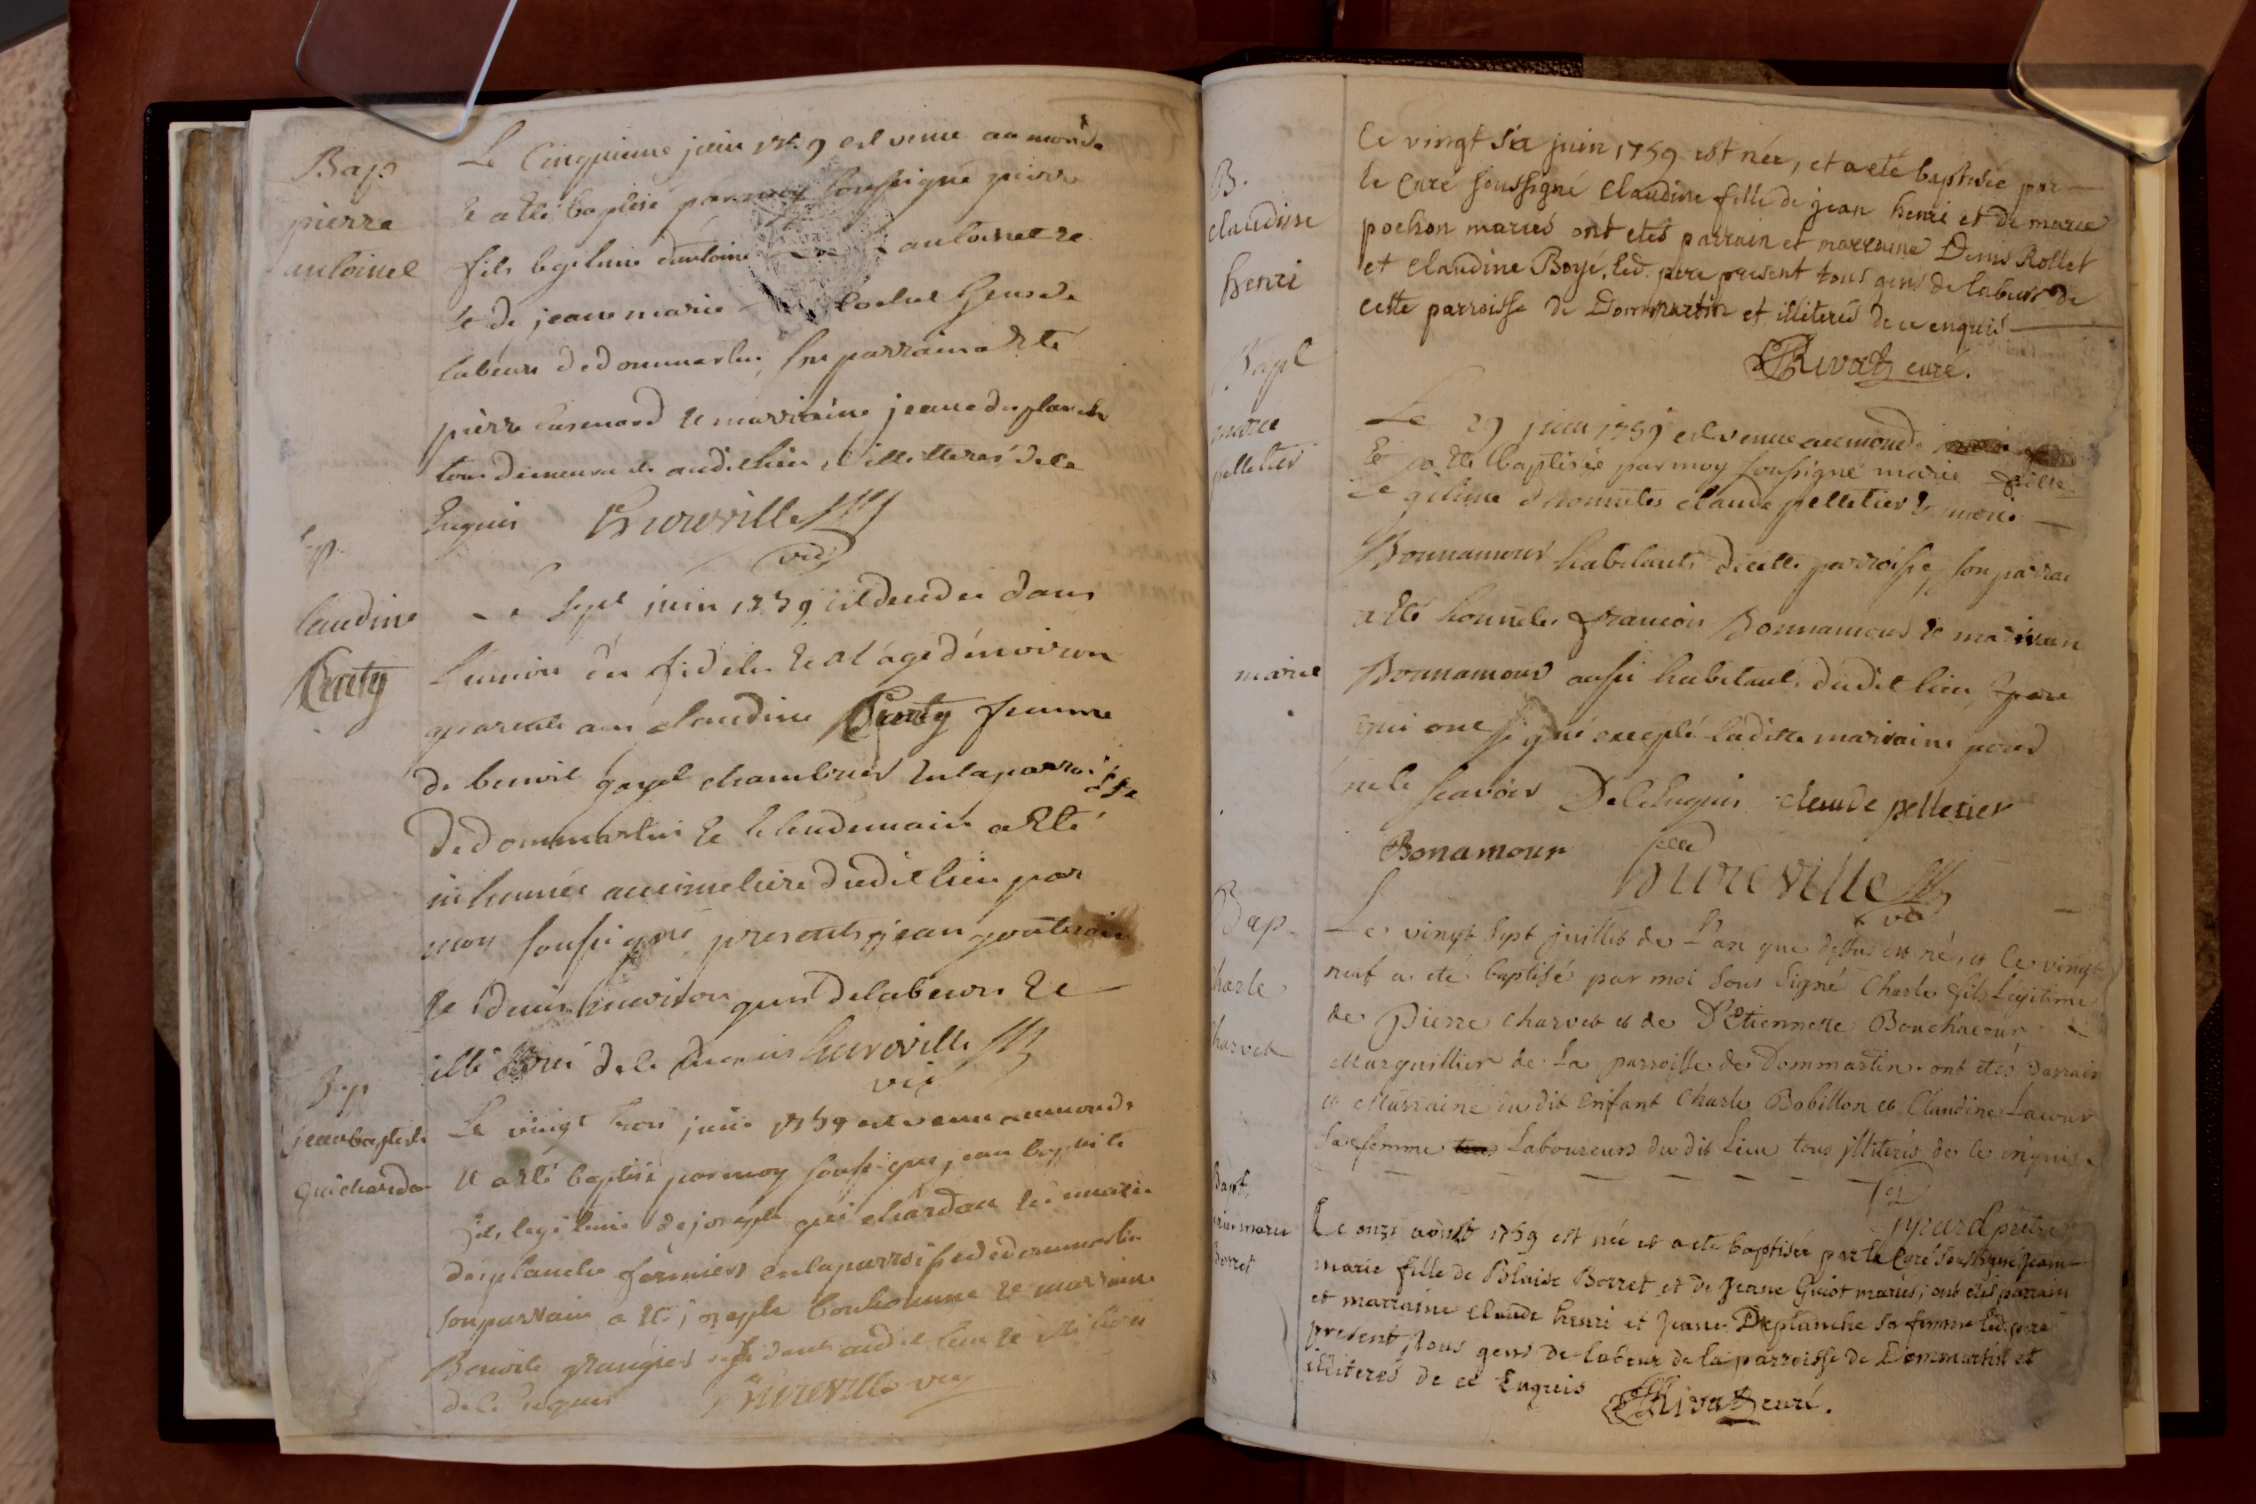 Bap
pierre
antoinet
Le Cinquieme juin 1759 est venu au monde
et a eté baptisé par moy soussigné pierre
fils legitime d'antoine antoinet et
et de jeane marie Gens de
labeurs de dommartin, son parrain a eté
pierre et marraine jeane duplanche
tous demeurants audit lieu, illitterés de ce
Enquis hureville
vic
Claudine
Penty
Le sept juin 1759 est decedée dans
l'union des fideles et a l'age d'environ
quarante ans claudine Penty femme
de benoit gayet chambrier en la parroisse
de dommartin et le lendemain a eté
inhumée au cimetiere dudit lieu par
moy soussigné presents jean
et denis gens de labeurs et
de ce Enquis hureville
vic
Bap
jean baptiste
guichardon
Le vingt trois juin 1759 est venu au monde
et a eté baptisé par moy soussigné jean baptiste
fils legitime de joseph guichardon et de marie
desplanche fermiers en la parroisse de dommartin
son parrain a eté joseph bonhomme et marraine
Benoite granger residants audit lieu et
de ce Enquis hureville vic
B.
claudine
henri
Le vingt six juin 1759 est née, et a eté baptisée par
le Curé soussigné claudine fille de jean henri et de marie
pochon mariés ont etés parrain et marraine Denis Rollet
et claudine Boyé, led. pere present tous gens de labeur de
cette parroisse de Dommartin et illiterés de ce enquis
Rivat curé.
Bapt
marie
pelletier
Le 29 juin 1759 est venue au monde
et a eté baptisée par moy soussigné marie fille
Legitime d'honnetes claude pelletier et marie
Bonnamour habitants de cette parroisse, son parrain
a eté honnete francois Bonnamour et marraine
marie Bonnamour aussi habitants dudit lieu,
qui ont signé excepté ladite marraine pour
ne le scavoir De ce Enquis claude pelletier
Bonamour hureville
vic
Bap.
Charle
Charvet
Le vingt sept juillet de l'an que dessus est né, et le vingt
neuf a eté baptisé par moi sous signé Charle fils Légitime
de Pierre Charvet et de D'Etiennette Bouchacour
Marguillier de La parroisse de Dommartin. ont etés Parrain
et Marraine dudit Enfant Charle Bobillon et Claudine Lacour
Sa femme Laboureurs du dit Lieu tous jlliterés de ce enquis.
prêtre
Bapt.
jeane marie
Borret
Le onze aoust 1759 est née et a eté baptisée par le Curé soussigné jeane
marie fille de Blaise Borret et de Jeane Guiot mariés; ont etés parrain
et marraine claude henri et Jeane Deplanche sa femme led. pere
present, tous gens de labeur de la parroisse de Dommartin et
illiterés de ce Enquis Rivat curé.